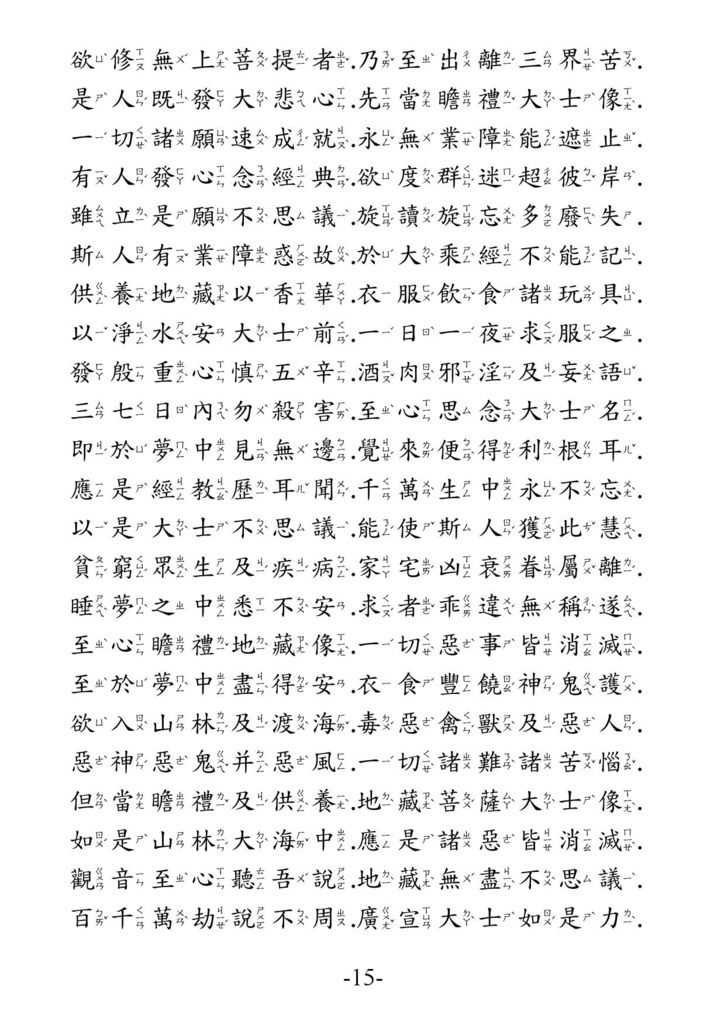 欲修無上菩提者.乃至出離三界苦.
是人既發大悲心.先當瞻禮大士像.
一切諸願速成就.永無業障能遮止.
有人發心念經典.欲度群迷超彼岸.
雖立是願不思議.旋讀旋忘多廢失.
斯人有業障惑故.於大乘經不能記.
供養地藏以香華.衣服飲食諸玩具.
以淨水安大士前.一日一夜求服之.
發殷重心慎五辛.酒肉邪淫及妄語.
三七日內勿殺害.至心思念大士名.
即於夢中見無邊.覺來便得利根耳.
應是經教歷耳聞.千萬生中永不忘.
以是大士不思議.能使斯人獲此慧.
貧窮眾生及疾病.家宅凶衰眷屬離.
睡夢之中悉不安.求者乖違無稱遂.
至心瞻禮地藏像.一切惡事皆消滅.
至於夢中盡得安.衣食豐饒神鬼護.
欲入山林及渡海.毒惡禽獸及惡人.
惡神惡鬼并惡風.一切諸難諸苦惱.
但當瞻禮及供養.地藏菩薩大士像.
如是山林大海中.應是諸惡皆消滅.
觀音至心聽吾說.地藏無盡不思議.
百千萬劫說不周.廣宣大士如是力.
-15-